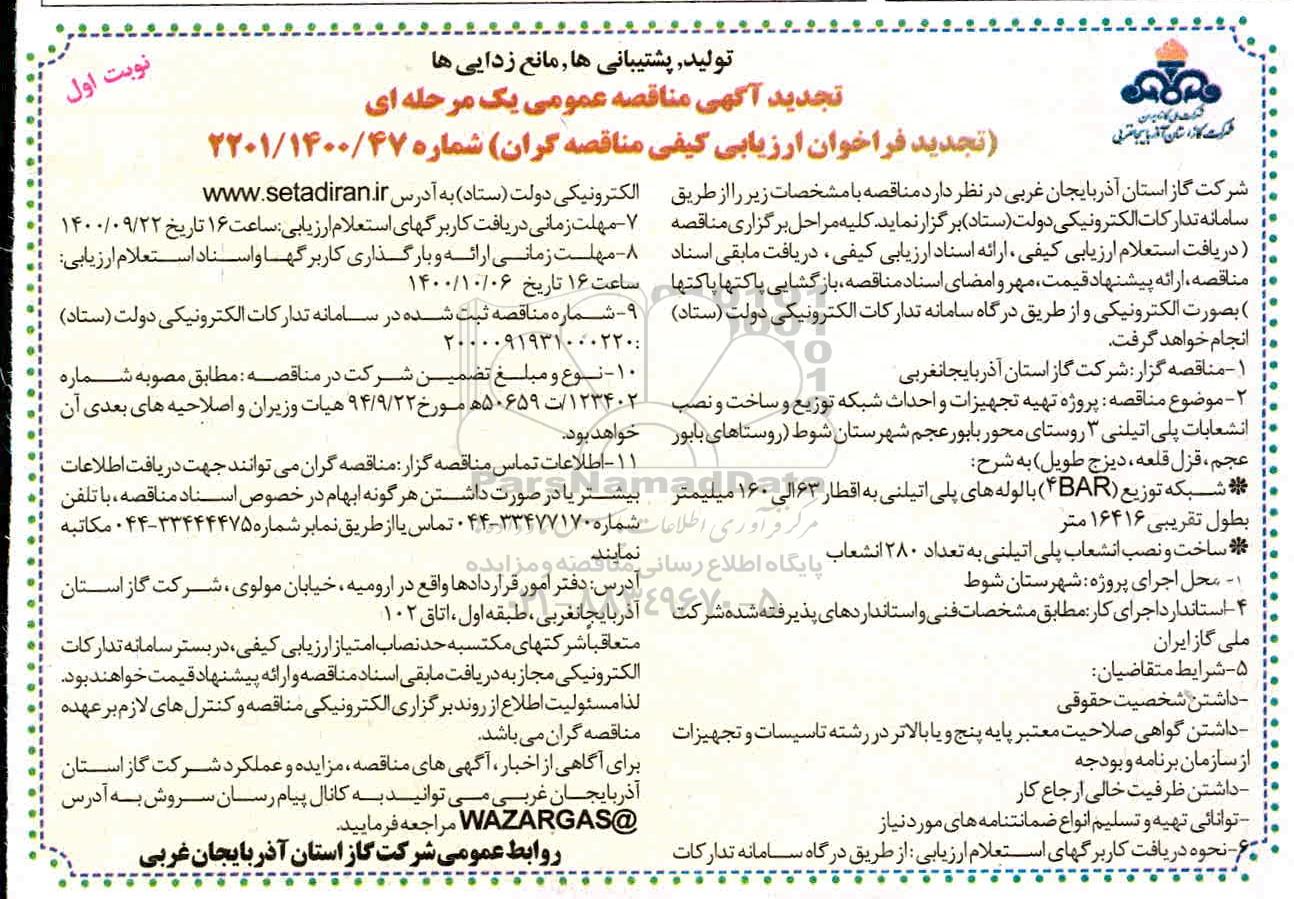 نوبت اول
شرکت ملی گاز ایران
شرکت گاز استان آذربایجان غربی
تولید, پشتیبانی ها, مانع زدایی ها
تجدید آگهی مناقصه عمومی یک مرحله ای
(تجدید فراخوان ارزیابی کیفی مناقصه گران) شماره ۲۲۰۱/۱۴۰۰/۴۷
شرکت گاز استان آذربایجان غربی در نظر دارد مناقصه با مشخصات زیر را از طریق
سامانه تدارکات الکترونیکی دولت (ستاد) برگزار نماید. کلیه مراحل برگزاری مناقصه
( دریافت استعلام ارزیابی کیفی ، ارائه اسناد ارزیابی کیفی ، دریافت مابقی اسناد
مناقصه، ارائه پیشنهاد قیمت، مهر و امضای اسناد مناقصه، بازگشایی پاکتها پاکتها
) بصورت الکترونیکی و از طریق درگاه سامانه تدارکات الکترونیکی دولت (ستاد)
انجام خواهد گرفت.
۱-مناقصه گزار: شرکت گاز استان آذربایجانغربی
۲-موضوع مناقصه: پروژه تهیه تجهیزات و احداث شبکه توزیع و ساخت و نصب
انشعابات پلی اتیلنی ۳ روستای محور بابور عجم شهرستان شوط (روستاهای بابور
عجم ، قزل قلعه، دیزج طویل) به شرح:
✽ شبکه توزیع (۴BAR) با لوله های پلی اتیلنی به اقطار ۶۳ الی ۱۶۰ میلیمتر
بطول تقریبی ۱۶۴۱۶ متر
✽ ساخت و نصب انشعاب پلی اتیلنی به تعداد ۲۸۰ انشعاب
محل اجرای پروژه: شهرستان شوط
۴-استاندارد اجرای کار: مطابق مشخصات فنی و استانداردهای پذیرفته شده شرکت
ملی گاز ایران
۵-شرایط متقاضیان:
-داشتن شخصیت حقوقی
-داشتن گواهی صلاحیت معتبر پایه پنج و یا بالاتر در رشته تاسیسات و تجهیزات
از سازمان برنامه و بودجه
-داشتن ظرفیت خالی ارجاع کار
-توانائی تهیه و تسلیم انواع ضمانتنامه های مورد نیاز
۶-نحوه دریافت کاربرگهای استعلام ارزیابی: از طریق درگاه سامانه تدارکات
الکترونیکی دولت (ستاد) به آدرس www.setadiran.ir
۷-مهلت زمانی دریافت کاربرگهای استعلام ارزیابی: ساعت ۱۶ تاریخ ۱۴۰۰/۰۹/۲۲
۸-مهلت زمانی ارائه و بارگذاری کاربرگها و اسناد استعلام ارزیابی:
ساعت ۱۶ تاریخ ۱۴۰۰/۱۰/۰۶
۹-شماره مناقصه ثبت شده در سامانه تدارکات الکترونیکی دولت (ستاد)
:۲۰۰۰۰۹۱۹۳۱۰۰۰۲۲۰
۱۰-نوع و مبلغ تضمین شرکت در مناقصه: مطابق مصوبه شماره
۱۲۳۴۰۲/ت ۵۰۶۵۹ه مورخ ۹۴/۹/۲۲ هیات وزیران و اصلاحیه های بعدی آن
خواهد بود.
۱۱-اطلاعات تماس مناقصه گزار: مناقصه گران می توانند جهت دریافت اطلاعات
بیشتر یا در صورت داشتن هر گونه ابهام در خصوص اسناد مناقصه، با تلفن
شماره ۳۳۴۷۷۱۷۰-۰۴۴ تماس یا از طریق نمابر شماره ۳۳۴۴۴۴۷۵-۰۴۴ مکاتبه
نمایند.
آدرس: دفتر امور قراردادها واقع در ارومیه، خیابان مولوی ، شرکت گاز استان
آذربایجانغربی، طبقه اول، اتاق ۱۰۲
متعاقباً شرکتهای مکتسبه حد نصاب امتیاز ارزیابی کیفی، در بستر سامانه تدارکات
الکترونیکی مجاز به دریافت مابقی اسناد مناقصه و ارائه پیشنهاد قیمت خواهند بود.
لذا مسئولیت اطلاع از روند برگزاری الکترونیکی مناقصه و کنترل های لازم بر عهده
مناقصه گران می باشد.
برای آگاهی از اخبار ، آگهی های مناقصه، مزایده و عملکرد شرکت گاز استان
آذربایجان غربی می توانید به کانال پیام رسان سروش به آدرس
@WAZARGAS مراجعه فرمایید.
روابط عمومی شرکت گاز استان آذربایجان غربی
ParsNamadData
پایگاه اطلاع رسانی مناقصه و مزایده
۰۲۱-۸۸۳۴۹۶۷۰-۵